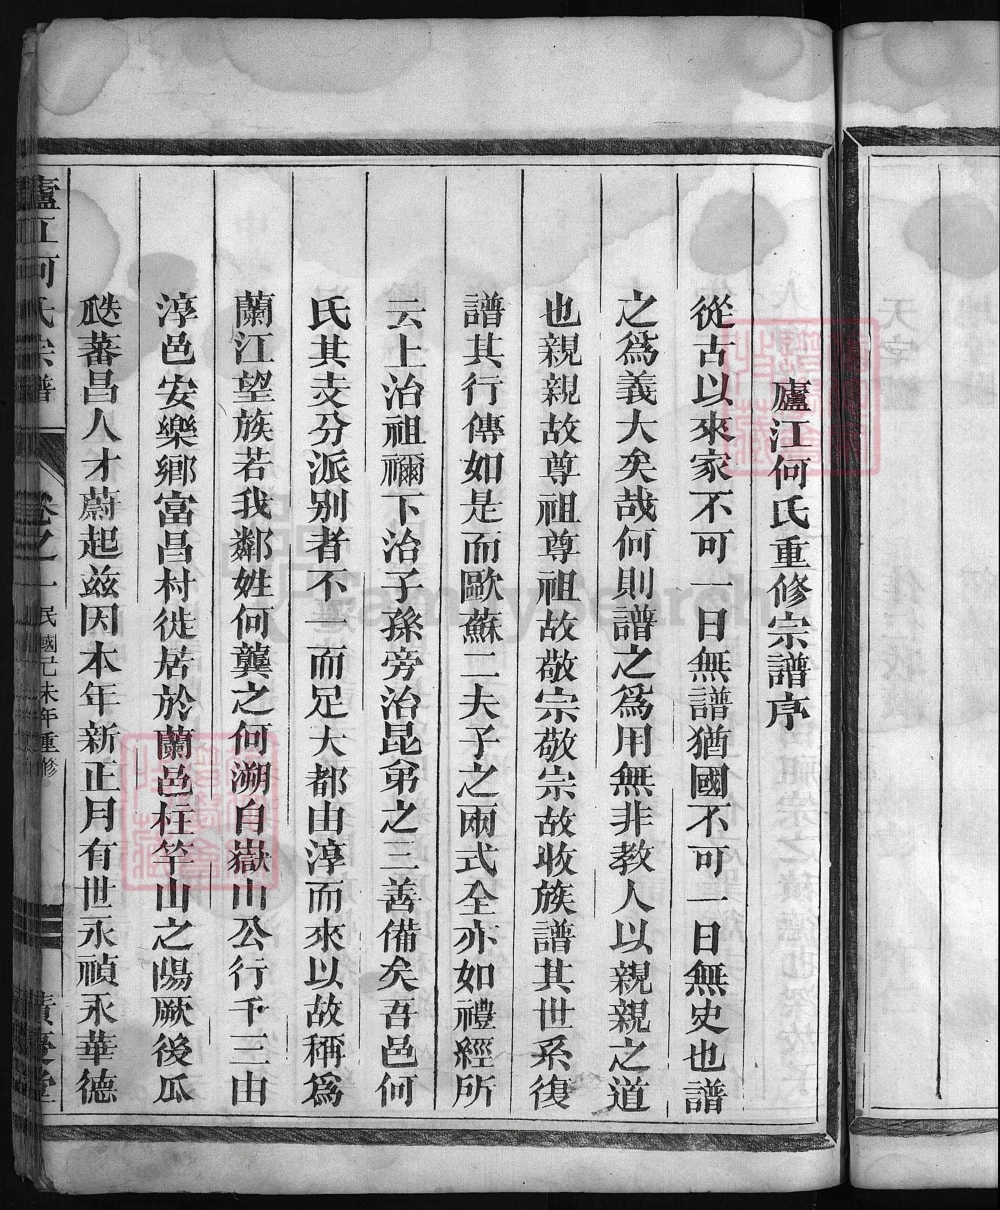 廬江何氏重修宗譜序
從古以來家不可一日無譜猶國不可一日無史也譜
之爲義大矣哉何則譜之爲用無非教人以親親之道
也親親故尊祖尊祖故敬宗敬宗故收族譜其世系復
譜其行傳如是而歐蘇二夫子之兩式全亦如禮經所
云上治祖禰下治子孫旁治昆弟之三善備矣吾邑何
氏其支分派别者不一而足大都由淳而來以故稱爲
蘭江望族若我鄰姓何龔之何溯自嶽山公行千三由
淳邑安樂鄉富昌村徙居於蘭邑柱竿山之陽厥後瓜
瓞蕃昌人才蔚起兹因本年新正月有世永禎永華德
廬江何氏宗譜
卷之一
民國己未年重修